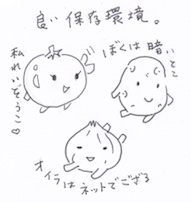 良い保存環境。
ぼくは暗いとこ
私れいぞうこ♡
オイラは
ネットでござる